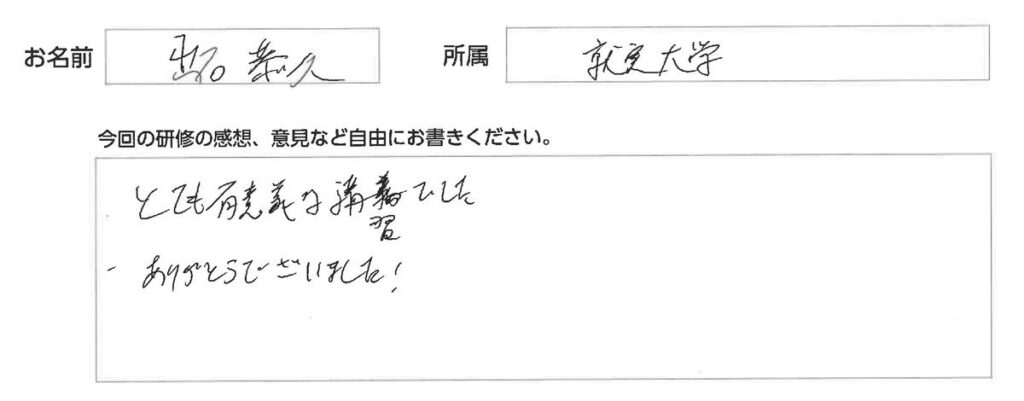 お名前 出石 恭久 所属 就実大学
今回の研修の感想、意見など自由にお書きください。
・とても有意義な講習でした
・ありがとうございました！